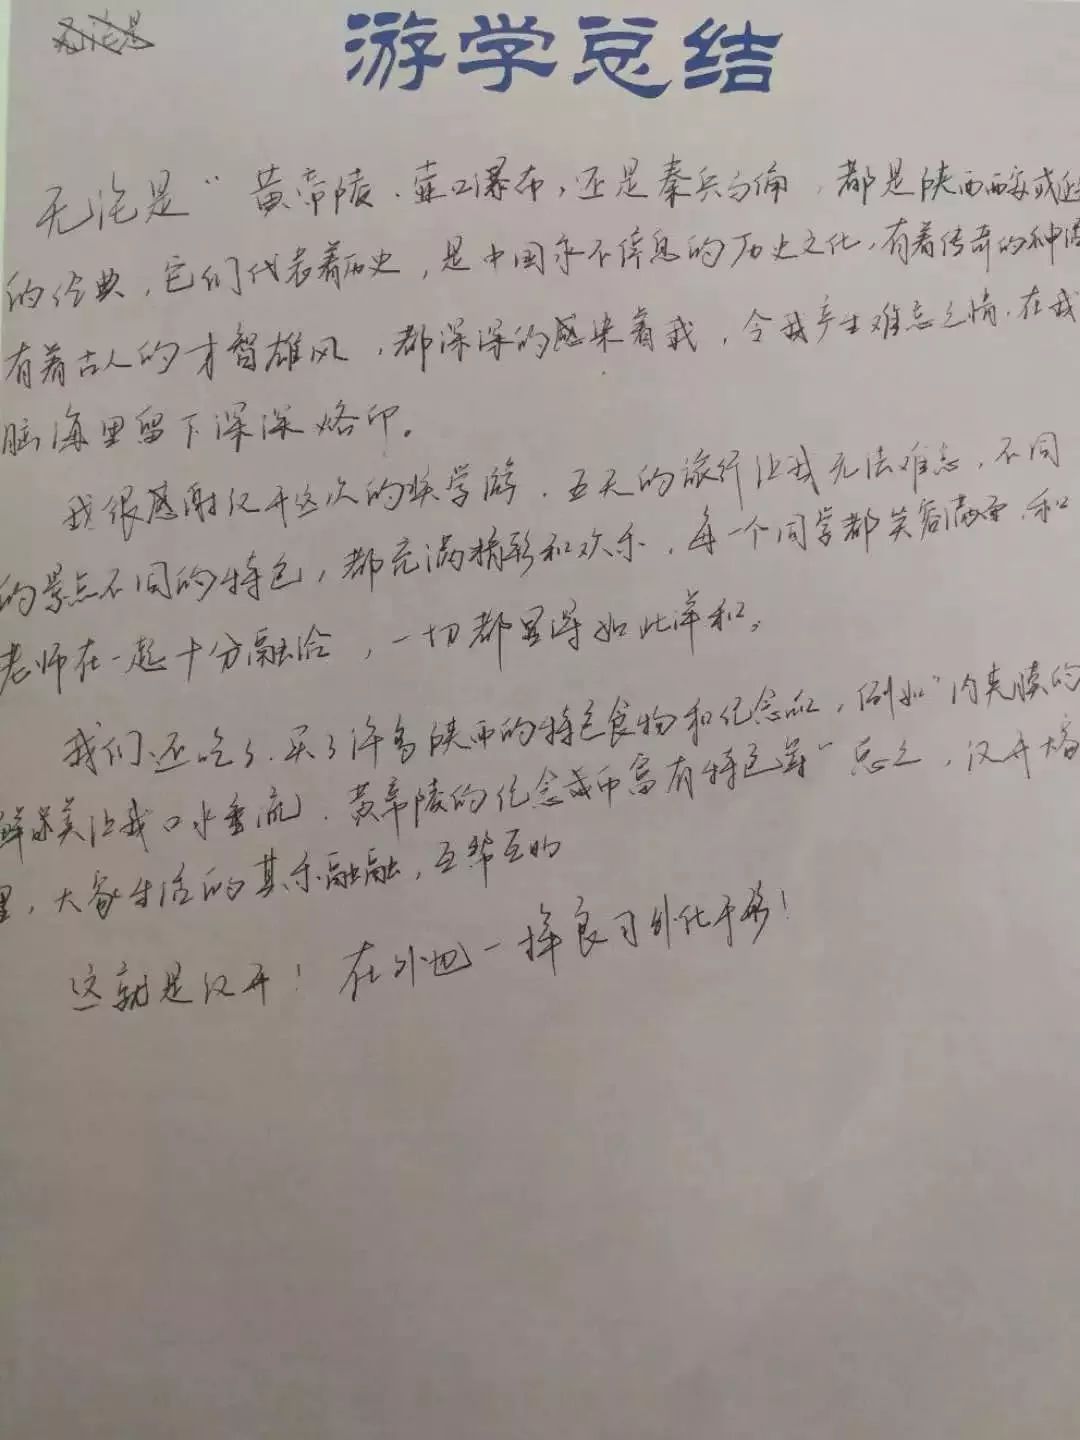 游学总结
无论是
无论是“黄帝陵、壶口瀑布,还是秦兵马俑,都是陕西西安或延
的经典,它们代表着历史,是中国永不停息的历史文化,有着传奇的神
有着古人的才智雄风,都深深的感染着我,令我产生难忘之情,在我
脑海里留下深深烙印。
我很感谢汉开这次的游学,五天的旅行让我无法难忘,不同
的景点不同的特色,都充满精彩和欢乐,每一个同学都笑容满面,和
老师在一起十分融洽,一切都显得如此洋和。
我们还吃了、买了许多陕西的特色食物和纪念品,例如“肉夹馍的
鲜美让我口水垂流,黄帝陵的纪念或币富有特色等”总之,汉开
里,大家生活的其乐融融,互帮互助
这就是汉开!在外也一样良习外化于形!